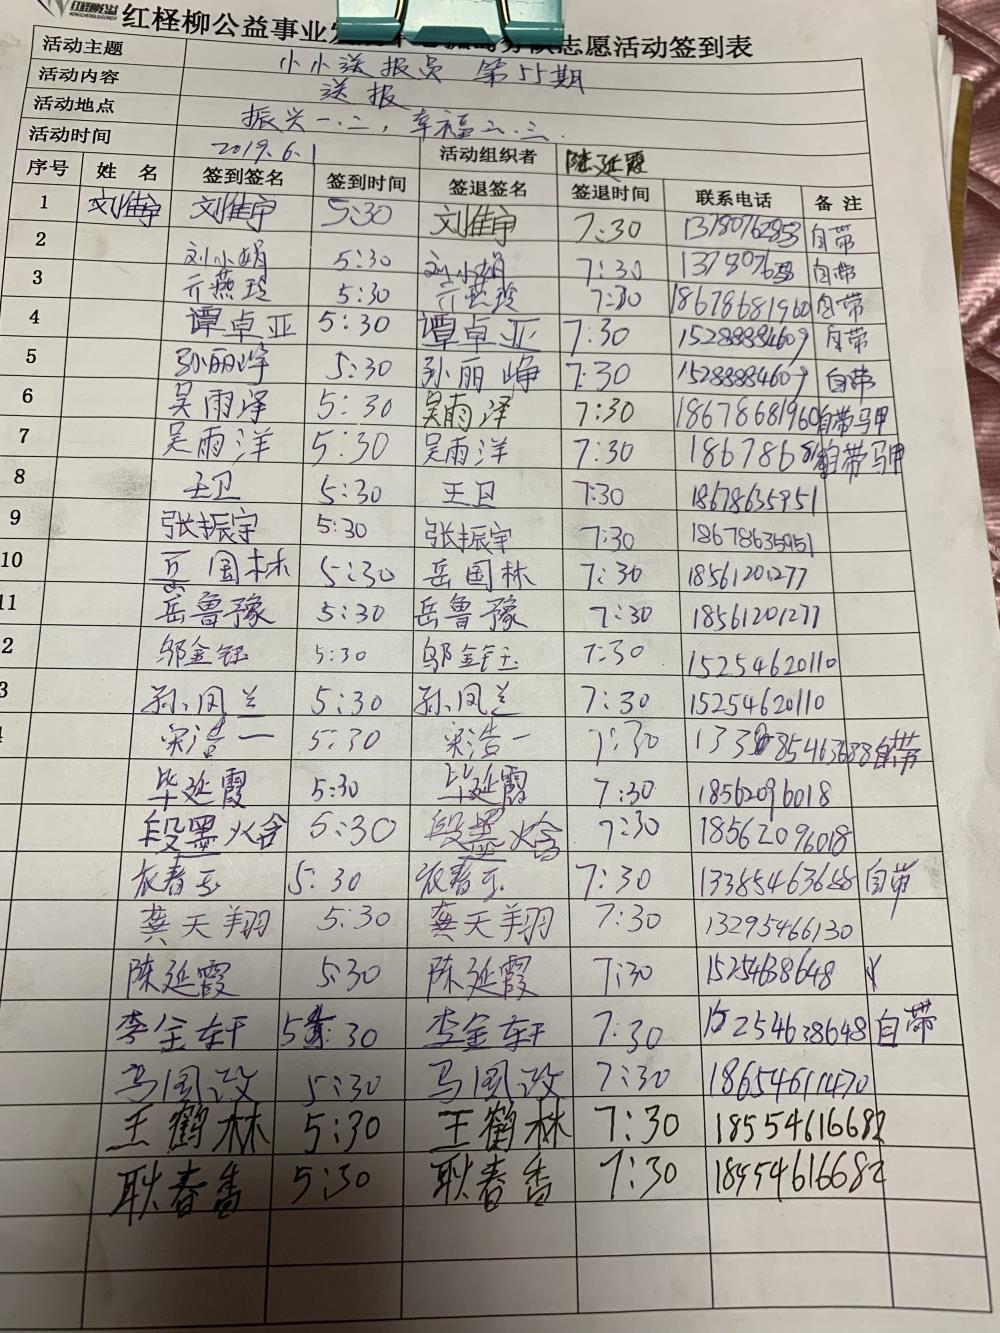 红柽柳公益
红柽柳公益事业 志愿活动签到表
活动主题 小小送报员 第55期
活动内容 送报
活动地点 振兴一.二，幸福二.三.
活动时间 2019.6.1 活动组织者 陈延霞
序号 姓 名 签到签名 签到时间 签退签名 签退时间 联系电话 备 注
1 刘佳宇 刘佳宇 5:30 刘佳宇 7:30 13780762853 自带
2 刘小娟 5:30 刘小娟 7:30 自带
3 亓燕玲 5:30 亓燕玲 7:30 18678681960 自带
4 谭卓亚 5:30 谭卓亚 7:30 15288884609 自带
5 孙丽峥 5:30 孙丽峥 7:30 15288884609 自带
6 吴雨泽 5:30 吴雨泽 7:30 18678681960 自带马甲
7 吴雨洋 5:30 吴雨洋 7:30 自带马甲
8 王卫 5:30 王卫 7:30 18678635951
9 张振宇 5:30 张振宇 7:30 18678635951
10 岳国林 5:30 岳国林 7:30 18561201277
11 岳鲁豫 5:30 岳鲁豫 7:30 18561201277
2 邬金钰 5:30 邬金钰 7:30 15254620110
3 孙凤兰 5:30 孙凤兰 7:30 15254620110
宋浩一 5:30 宋浩一 7:30 自带
毕延霞 5:30 毕延霞 7:30 18562096018
段墨焓 5:30 段墨焓 7:30 18562096018
5:30 7:30 13385463688 自带
龚天翔 5:30 龚天翔 7:30 13295466130
陈延霞 5:30 陈延霞 7:30 15254638648
李金轩 5:30 李金轩 7:30 15254638648 自带
马国政 5:30 马国政 7:30 18654611470
王鹤林 5:30 王鹤林 7:30 18554616682
耿春香 5:30 耿春香 7:30 18554616682